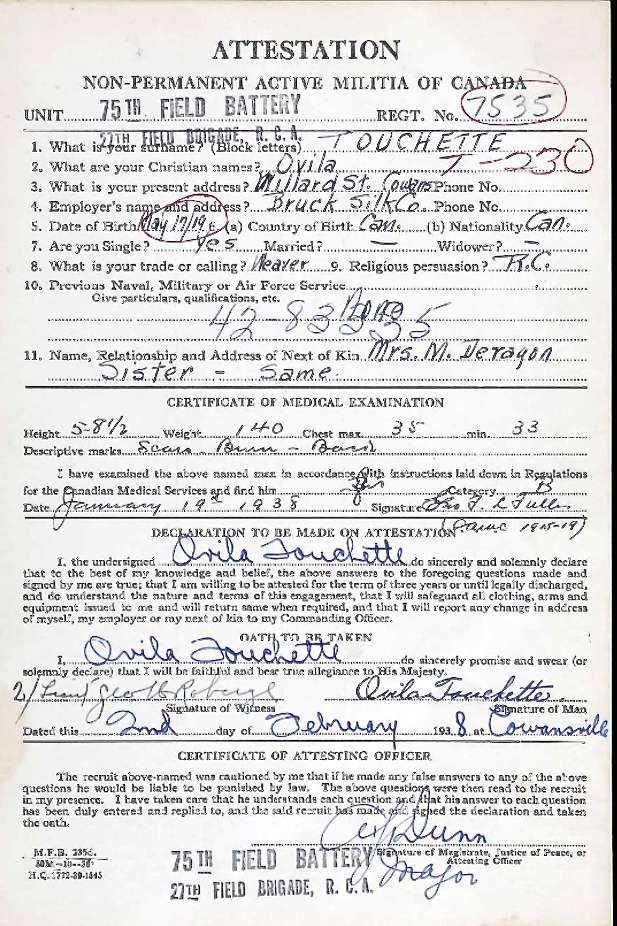 ATTESTATION
NON-PERMANENT ACTIVE MILITIA OF CANADA
UNIT 75TH FIELD BATTERY REGT. No. 7535
27TH FIELD BRIGADE, R. C. A.
1. What is your surname? (Block letters) TOUCHETTE
T-230
2. What are your Christian names? Ovila
3. What is your present address? Millard St. Cowans Phone No.
4. Employer's name and address? Bruck Silk Co. Phone No.
5. Date of Birth May 17/19 (a) Country of Birth Can. (b) Nationality Can.
7. Are you Single? yes Married? — Widower? —
8. What is your trade or calling? Weaver 9. Religious persuasion? R.C.
10. Previous Naval, Military or Air Force Service
Give particulars, qualifications, etc. None
42-83335
11. Name, Relationship and Address of Next of Kin Mrs. M. Deragon
Sister - Same.
CERTIFICATE OF MEDICAL EXAMINATION
Height 5-8 1/2 Weight 140 Chest max. 35 min. 33
Descriptive marks Scars - Burn - Back
I have examined the above named man in accordance with instructions laid down in Regulations
for the Canadian Medical Services and find him Category B
Date January 19th 1938 Signature
(C.A.M.C. 1915-19)
DECLARATION TO BE MADE ON ATTESTATION
I, the undersigned Ovila Touchette do sincerely and solemnly declare
that to the best of my knowledge and belief, the above answers to the foregoing questions made and
signed by me are true; that I am willing to be attested for the term of three years or until legally discharged,
and do understand the nature and terms of this engagement, that I will safeguard all clothing, arms and
equipment issued to me and will return same when required, and that I will report any change in address
of myself, my employer or my next of kin to my Commanding Officer.
OATH TO BE TAKEN
I, Ovila Touchette do sincerely promise and swear (or
solemnly declare) that I will be faithful and bear true allegiance to His Majesty.
2/Lieut Ovila Touchette
Signature of Witness Signature of Man
Dated this 2nd day of February 1938 at Cowansville
CERTIFICATE OF ATTESTING OFFICER
The recruit above-named was cautioned by me that if he made any false answers to any of the above
questions he would be liable to be punished by law. The above questions were then read to the recruit
in my presence. I have taken care that he understands each question and that his answer to each question
has been duly entered and replied to, and the said recruit has made and signed the declaration and taken
the oath.
Dunn
Major
Signature of Magistrate, Justice of Peace, or
Attesting Officer
M.F.B. 235d.
50M.—10-36
H.Q. 1772-39-1645
75TH FIELD BATTERY
27TH FIELD BRIGADE, R. C. A.